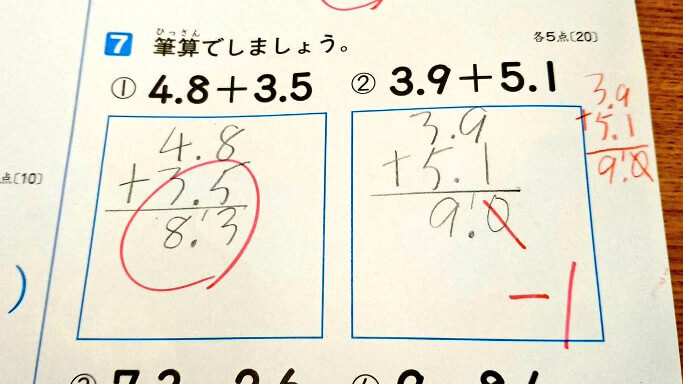 7 筆算でしましょう。 各5点〔20〕
ひっさん
① 4.8+3.5 ② 3.9+5.1
4.8
+3.5
8.3
3.9
+5.1
9.0
-1
3.9
+5.1
9.0
点〔10〕